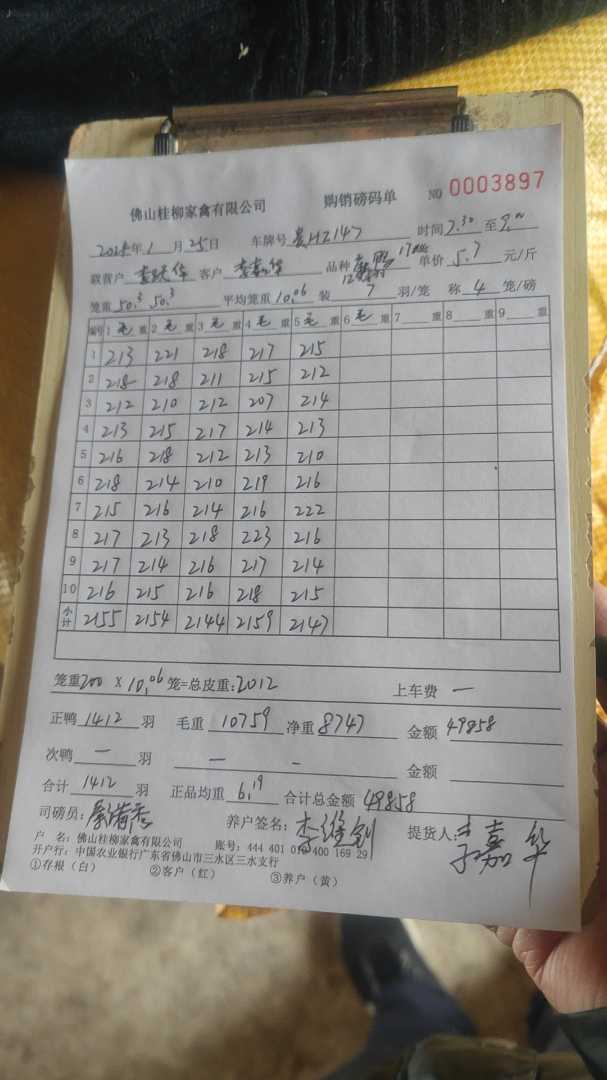 佛山桂柳家禽有限公司 购销磅码单 NO 0003897
2024年1月25日 车牌号 贵HZ147 时间7.30至9.00
联营户 客户 李嘉华 品种 单价 5.7 元/斤
笼重50.3 50.3 平均笼重10.06 装 7 羽/笼 称 4 笼/磅
编号 1毛重 2毛重 3毛重 4毛重 5毛重 6毛重 7重 8重 9重
1 213 221 218 217 215
2 218 218 211 215 212
3 212 210 212 207 214
4 213 215 217 214 213
5 216 218 212 213 210
6 218 214 210 219 216
7 215 216 214 216 222
8 217 213 218 223 216
9 217 214 216 217 214
10 216 215 216 218 215
小计 2155 2154 2144 2159 2147
笼重200 X 10.06笼=总皮重:2012 上车费 一
正鸭1412羽 毛重 10759 净重8747 金额 49858
次鸭 一 羽 — - 金额
合计 1412 羽 正品均重 6.19 合计总金额 49858
司磅员: 养户签名: 提货人:李嘉华
户 名:佛山桂柳家禽有限公司 账号:444 401 010 400 169 29
开户行:中国农业银行广东省佛山市三水区三水支行
①存根(白) ②客户(红) ③养户(黄)